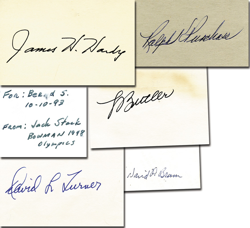 James H. Hardy
Ralph
For: Bernd S.
10-10-93
From: Jack Stack
Bowman 1948
Olympics
Butler
David L Turner
David M Brown